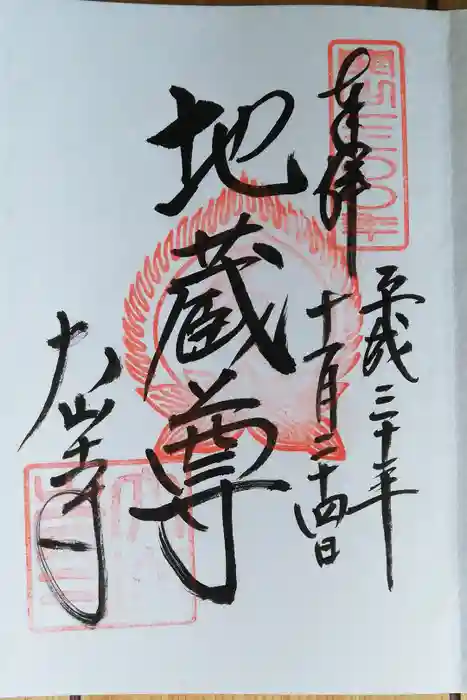 奉拝
開山一三〇〇年
平成三十年
十一月二十四日
地蔵尊
大山寺